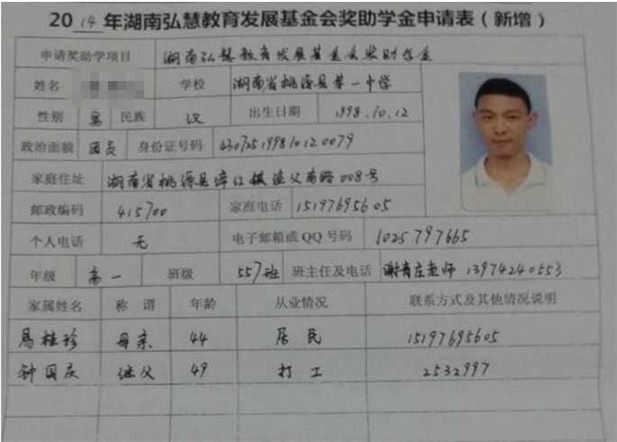 2014年湖南弘慧教育发展基金会奖助学金申请表（新增）
申请奖助学项目 湖南弘慧教育发展基金会奖助学金
姓名 学校 湖南省桃源县第一中学
性别 男 民族 汉 出生日期 1998.10.12
政治面貌 团员 身份证号码 430725199810120079
家庭住址 湖南省桃源县漳江镇渔父南路008号
邮政编码 415700 家庭电话 15197695605
个人电话 无 电子邮箱或QQ号码 1025797665
年级 高一 班级 557班 班主任及电话 谢青庄老师 13974240553
家属姓名 称谓 年龄 从业情况 联系方式及其他情况说明
马桂珍 母亲 44 居民 15197695605
钟国庆 继父 49 打工 2532997